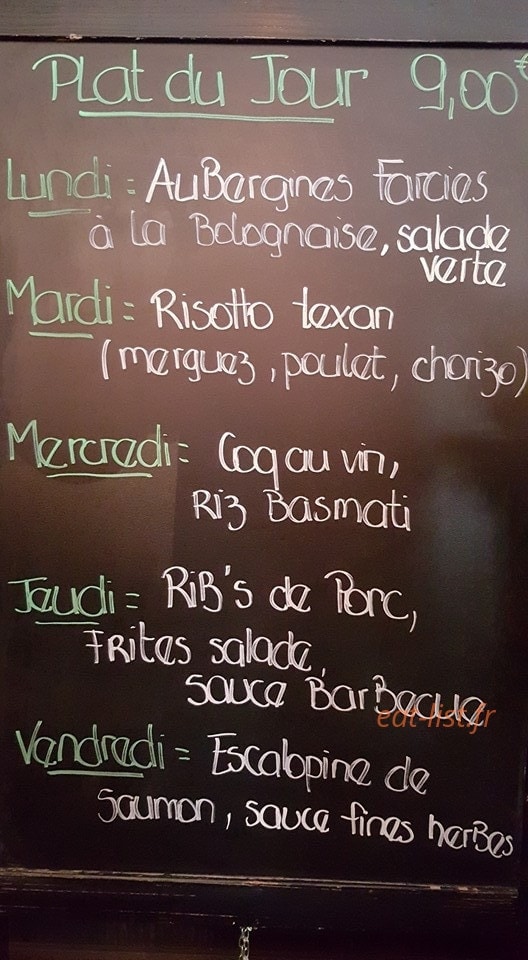 Plat du Jour 9,00€
Lundi = Aubergines Farcies
à la Bolognaise, salade
verte
Mardi = Risotto texan
(merguez, poulet, chorizo)
Mercredi = Coq au vin,
Riz Basmati
Jeudi = RiB's de Porc,
Frites salade,
sauce BarBecue
eat-list.fr
Vendredi = Escalopine de
saumon, sauce fines herbes